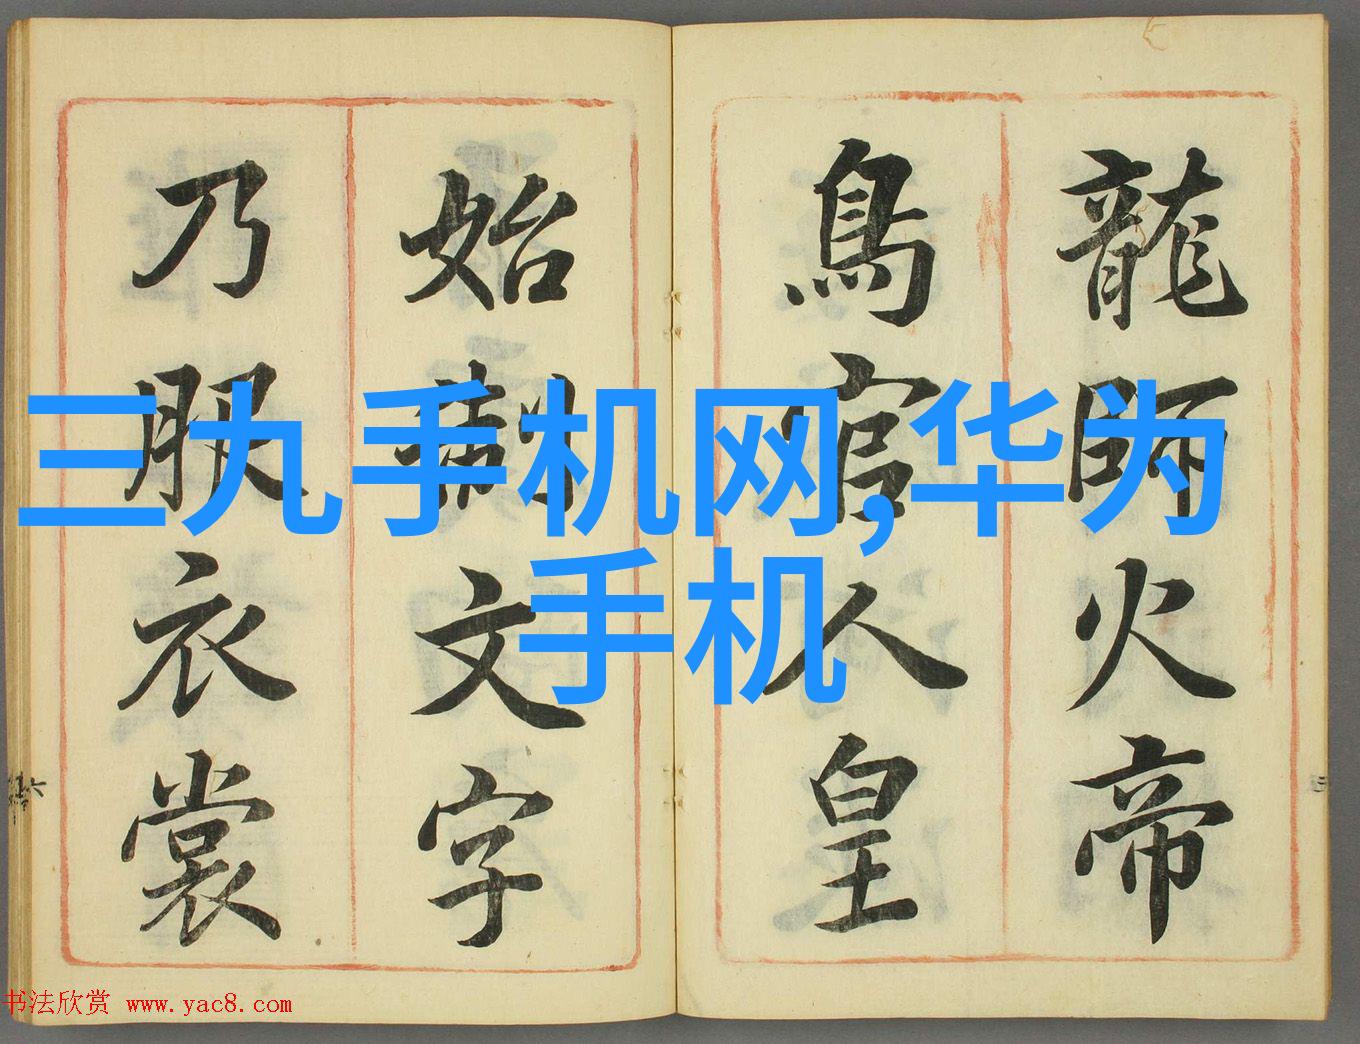 龍師火帝
鳥官人皇
始制文字
乃服衣裳
三九手机网,华为
手机
书法欣赏 www.yac8.com